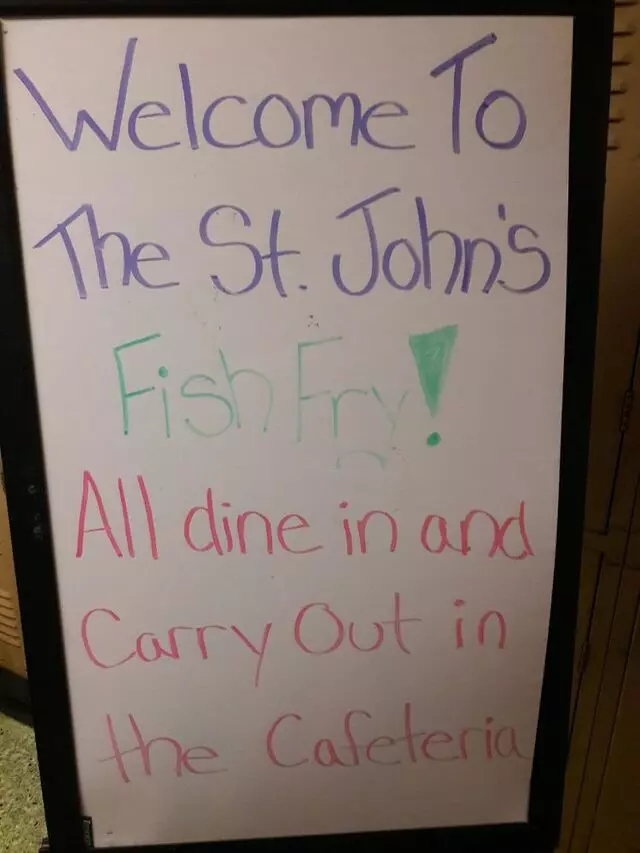 Welcome To
The St. John's
Fish Fry!
All dine in and
Carry Out in
the Cafeteria